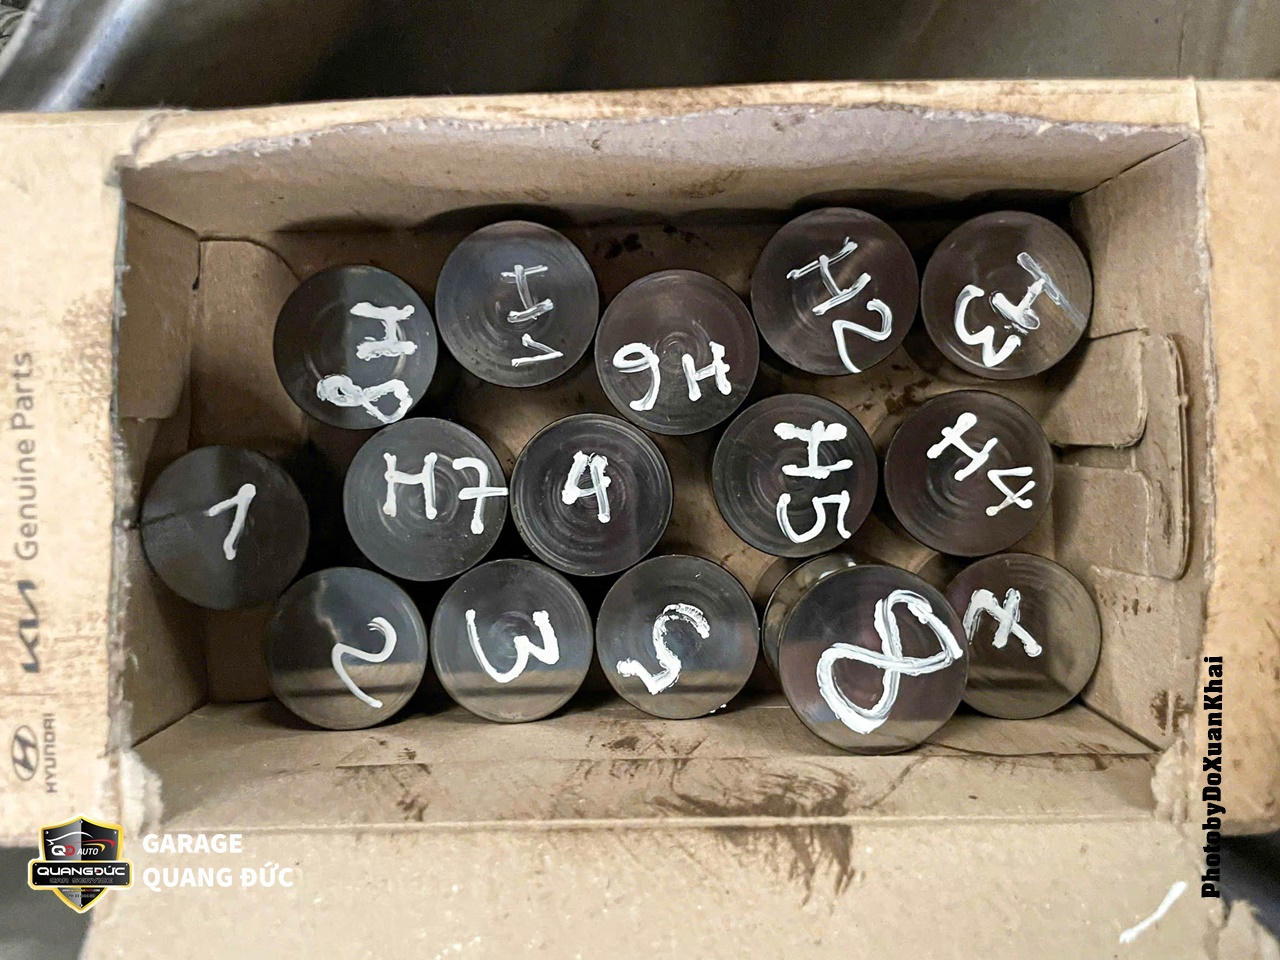 H8
H1
H6
H2
H3
1
H7
4
H5
H4
2
3
5
8
Genuine Parts
KIA
HYUNDAI
QĐ AUTO
QUANGĐỨC
CAR SERVICE
GARAGE
QUANG ĐỨC
PhotobyDoXuanKhai